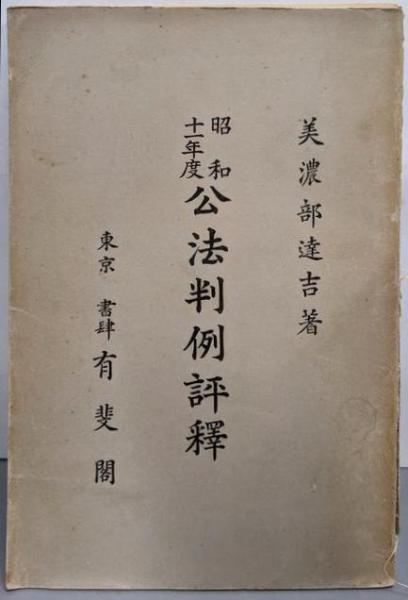 美濃部達吉著
昭和
十一年度
公法判例評釋
東京 書肆 有斐閣